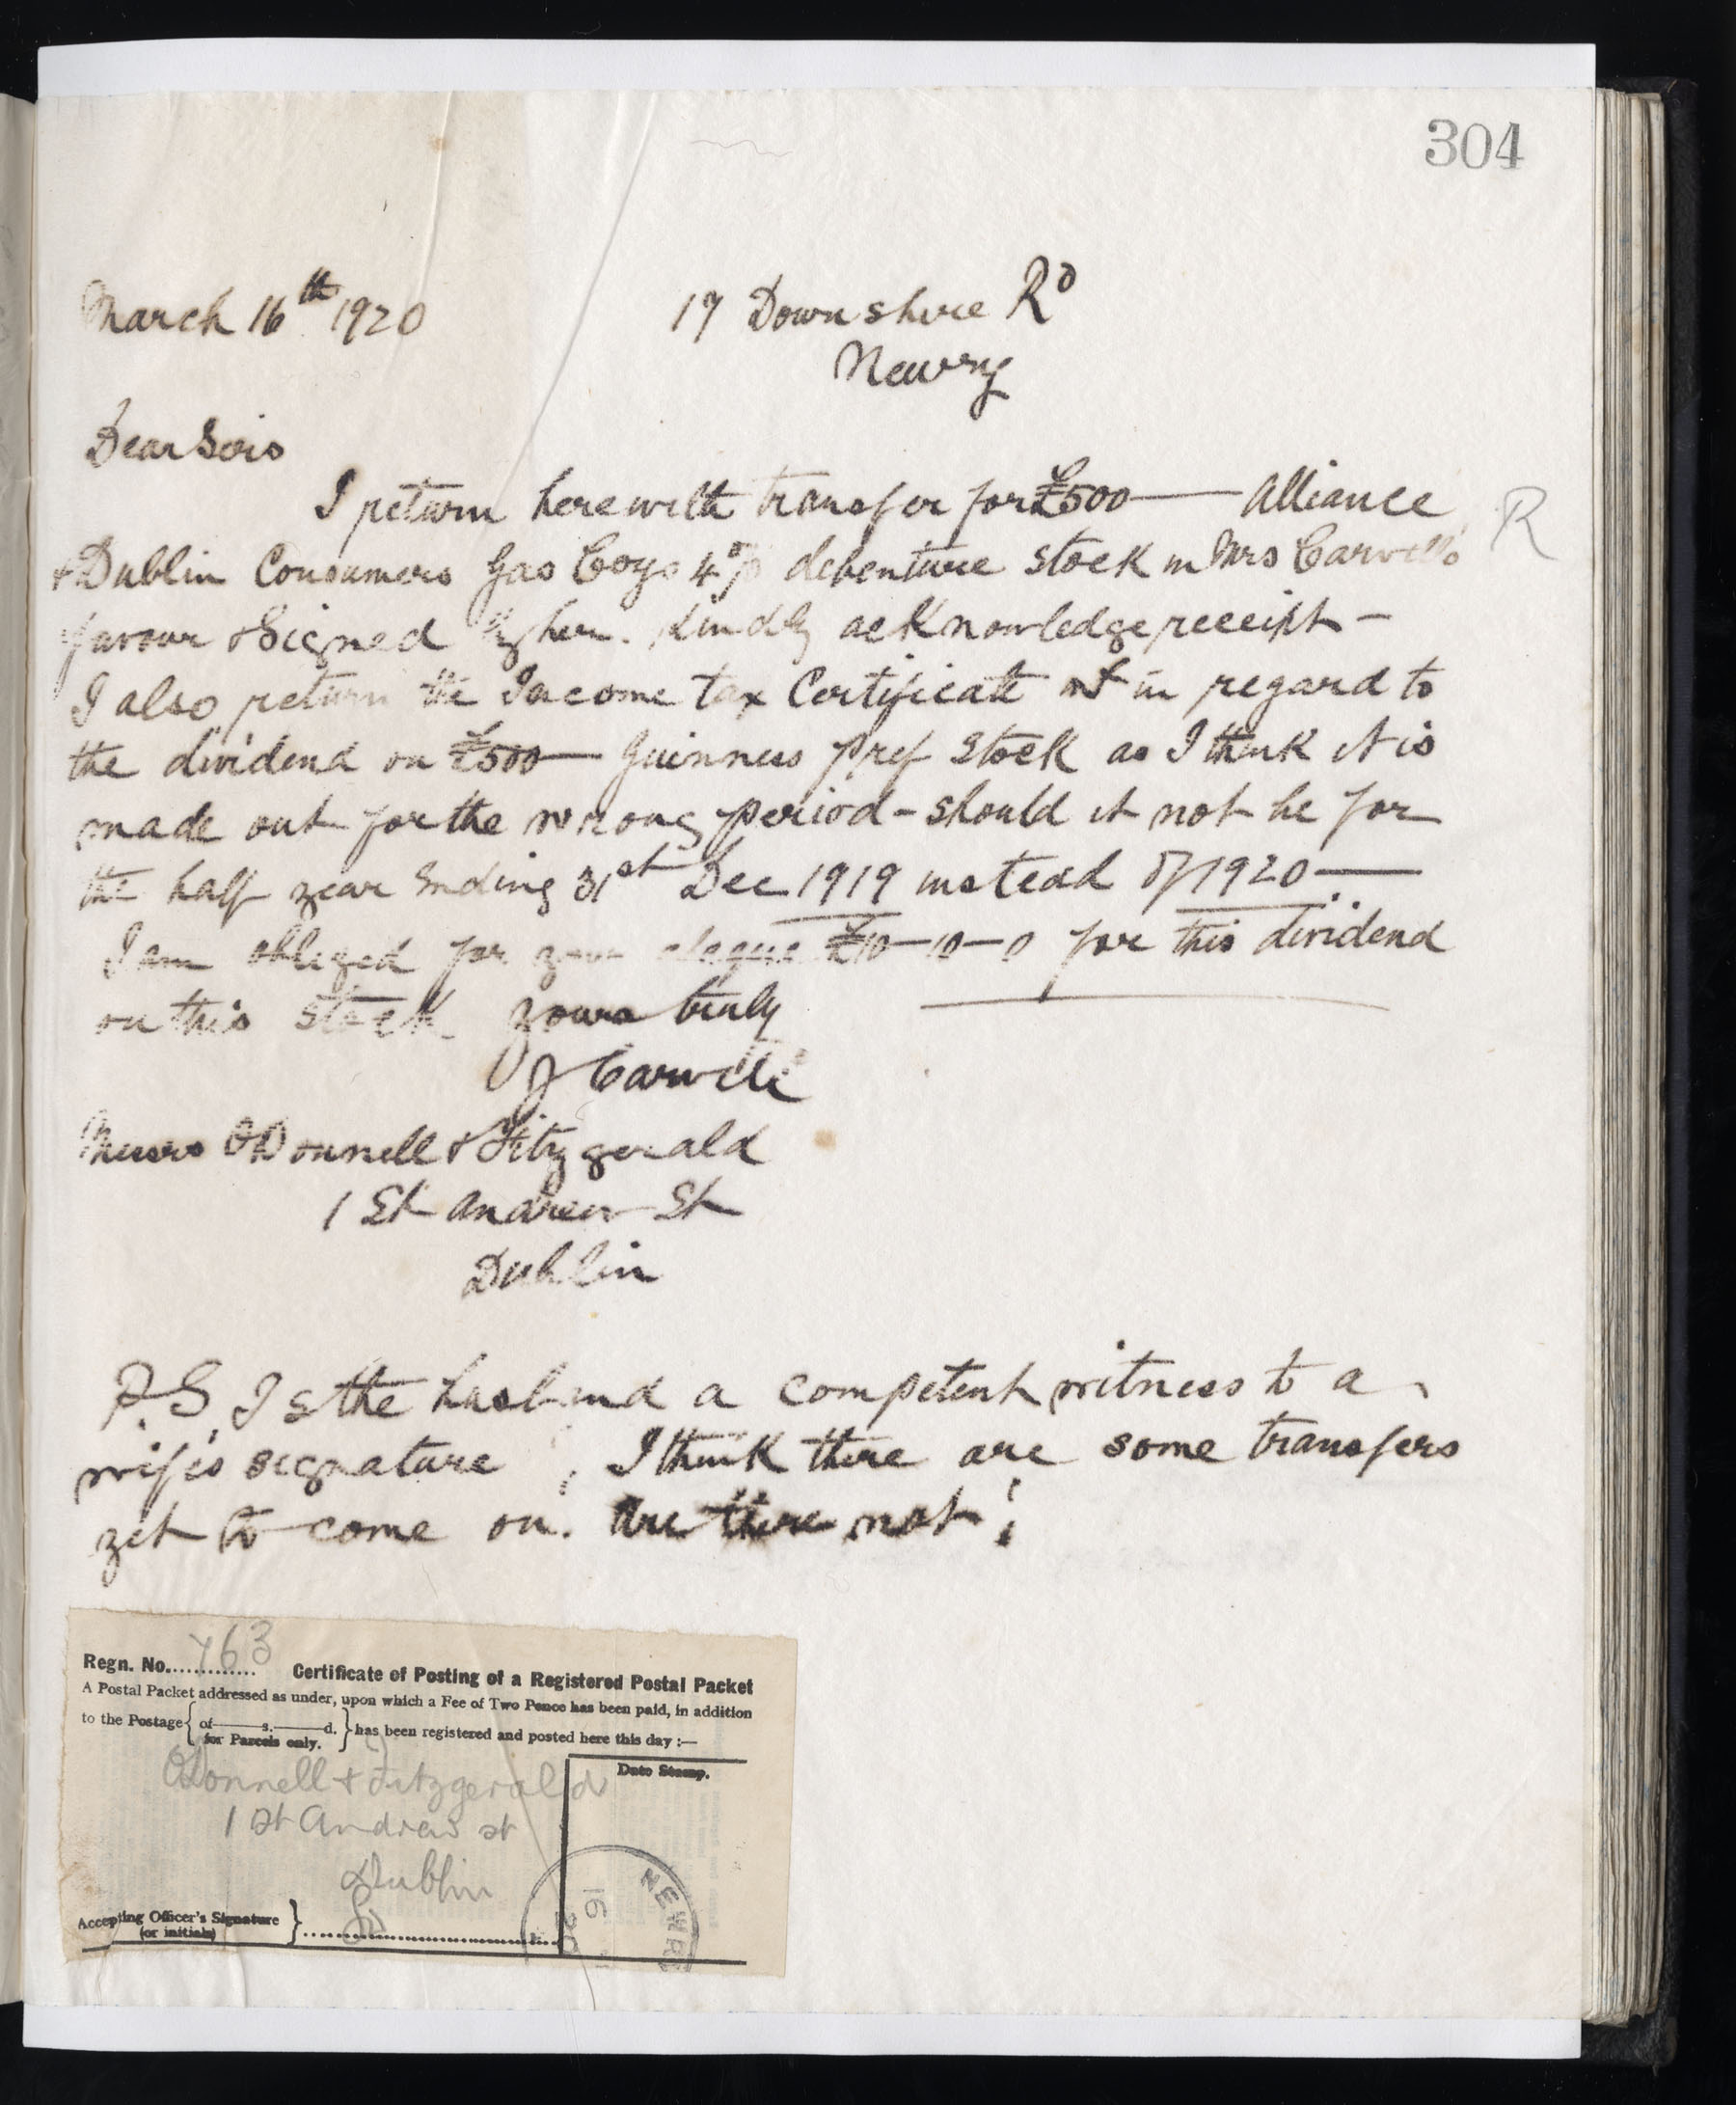 304
March 16th 1920
17 Downshire Rd
Newry
Dear Sirs
I return herewith transfer for £500 — Alliance
R
& Dublin Consumers Gas Coys 4% debenture stock in Mrs Carvill's
favour & signed by her. Kindly acknowledge receipt —
I also return the Income tax Certificate in regard to
the dividend on £500 — Guinness Pref Stock as I think it is
made out for the wrong period - should it not be for
the half year ending 31st Dec 1919 instead of 1920 —
I am obliged for your cheque £10-10-0 for this dividend
on this stock yours truly
J Carvill
Messrs O'Donnell & Fitzgerald
1 St Andrew St
Dublin
P.S. Is the husband a competent witness to a
wife's signature, I think there are some transfers
yet to come on. Are there not?
Regn. No. 763
Certificate of Posting of a Registered Postal Packet
A Postal Packet addressed as under, upon which a Fee of Two Pence has been paid, in addition
to the Postage { of — s. — d. } has been registered and posted here this day :—
for Parcels only.
Date Stamp.
O'Donnell & Fitzgerald
1 St Andrew St
Dublin
NEWRY
16
20
Accepting Officer's Signature
(or initials)